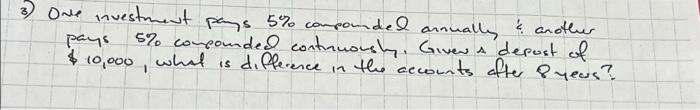 3) One investment pays 5% compounded annually & another
pays 5% compounded continuously. Given a deposit of
$10,000, what is difference in the accounts after 8 years?